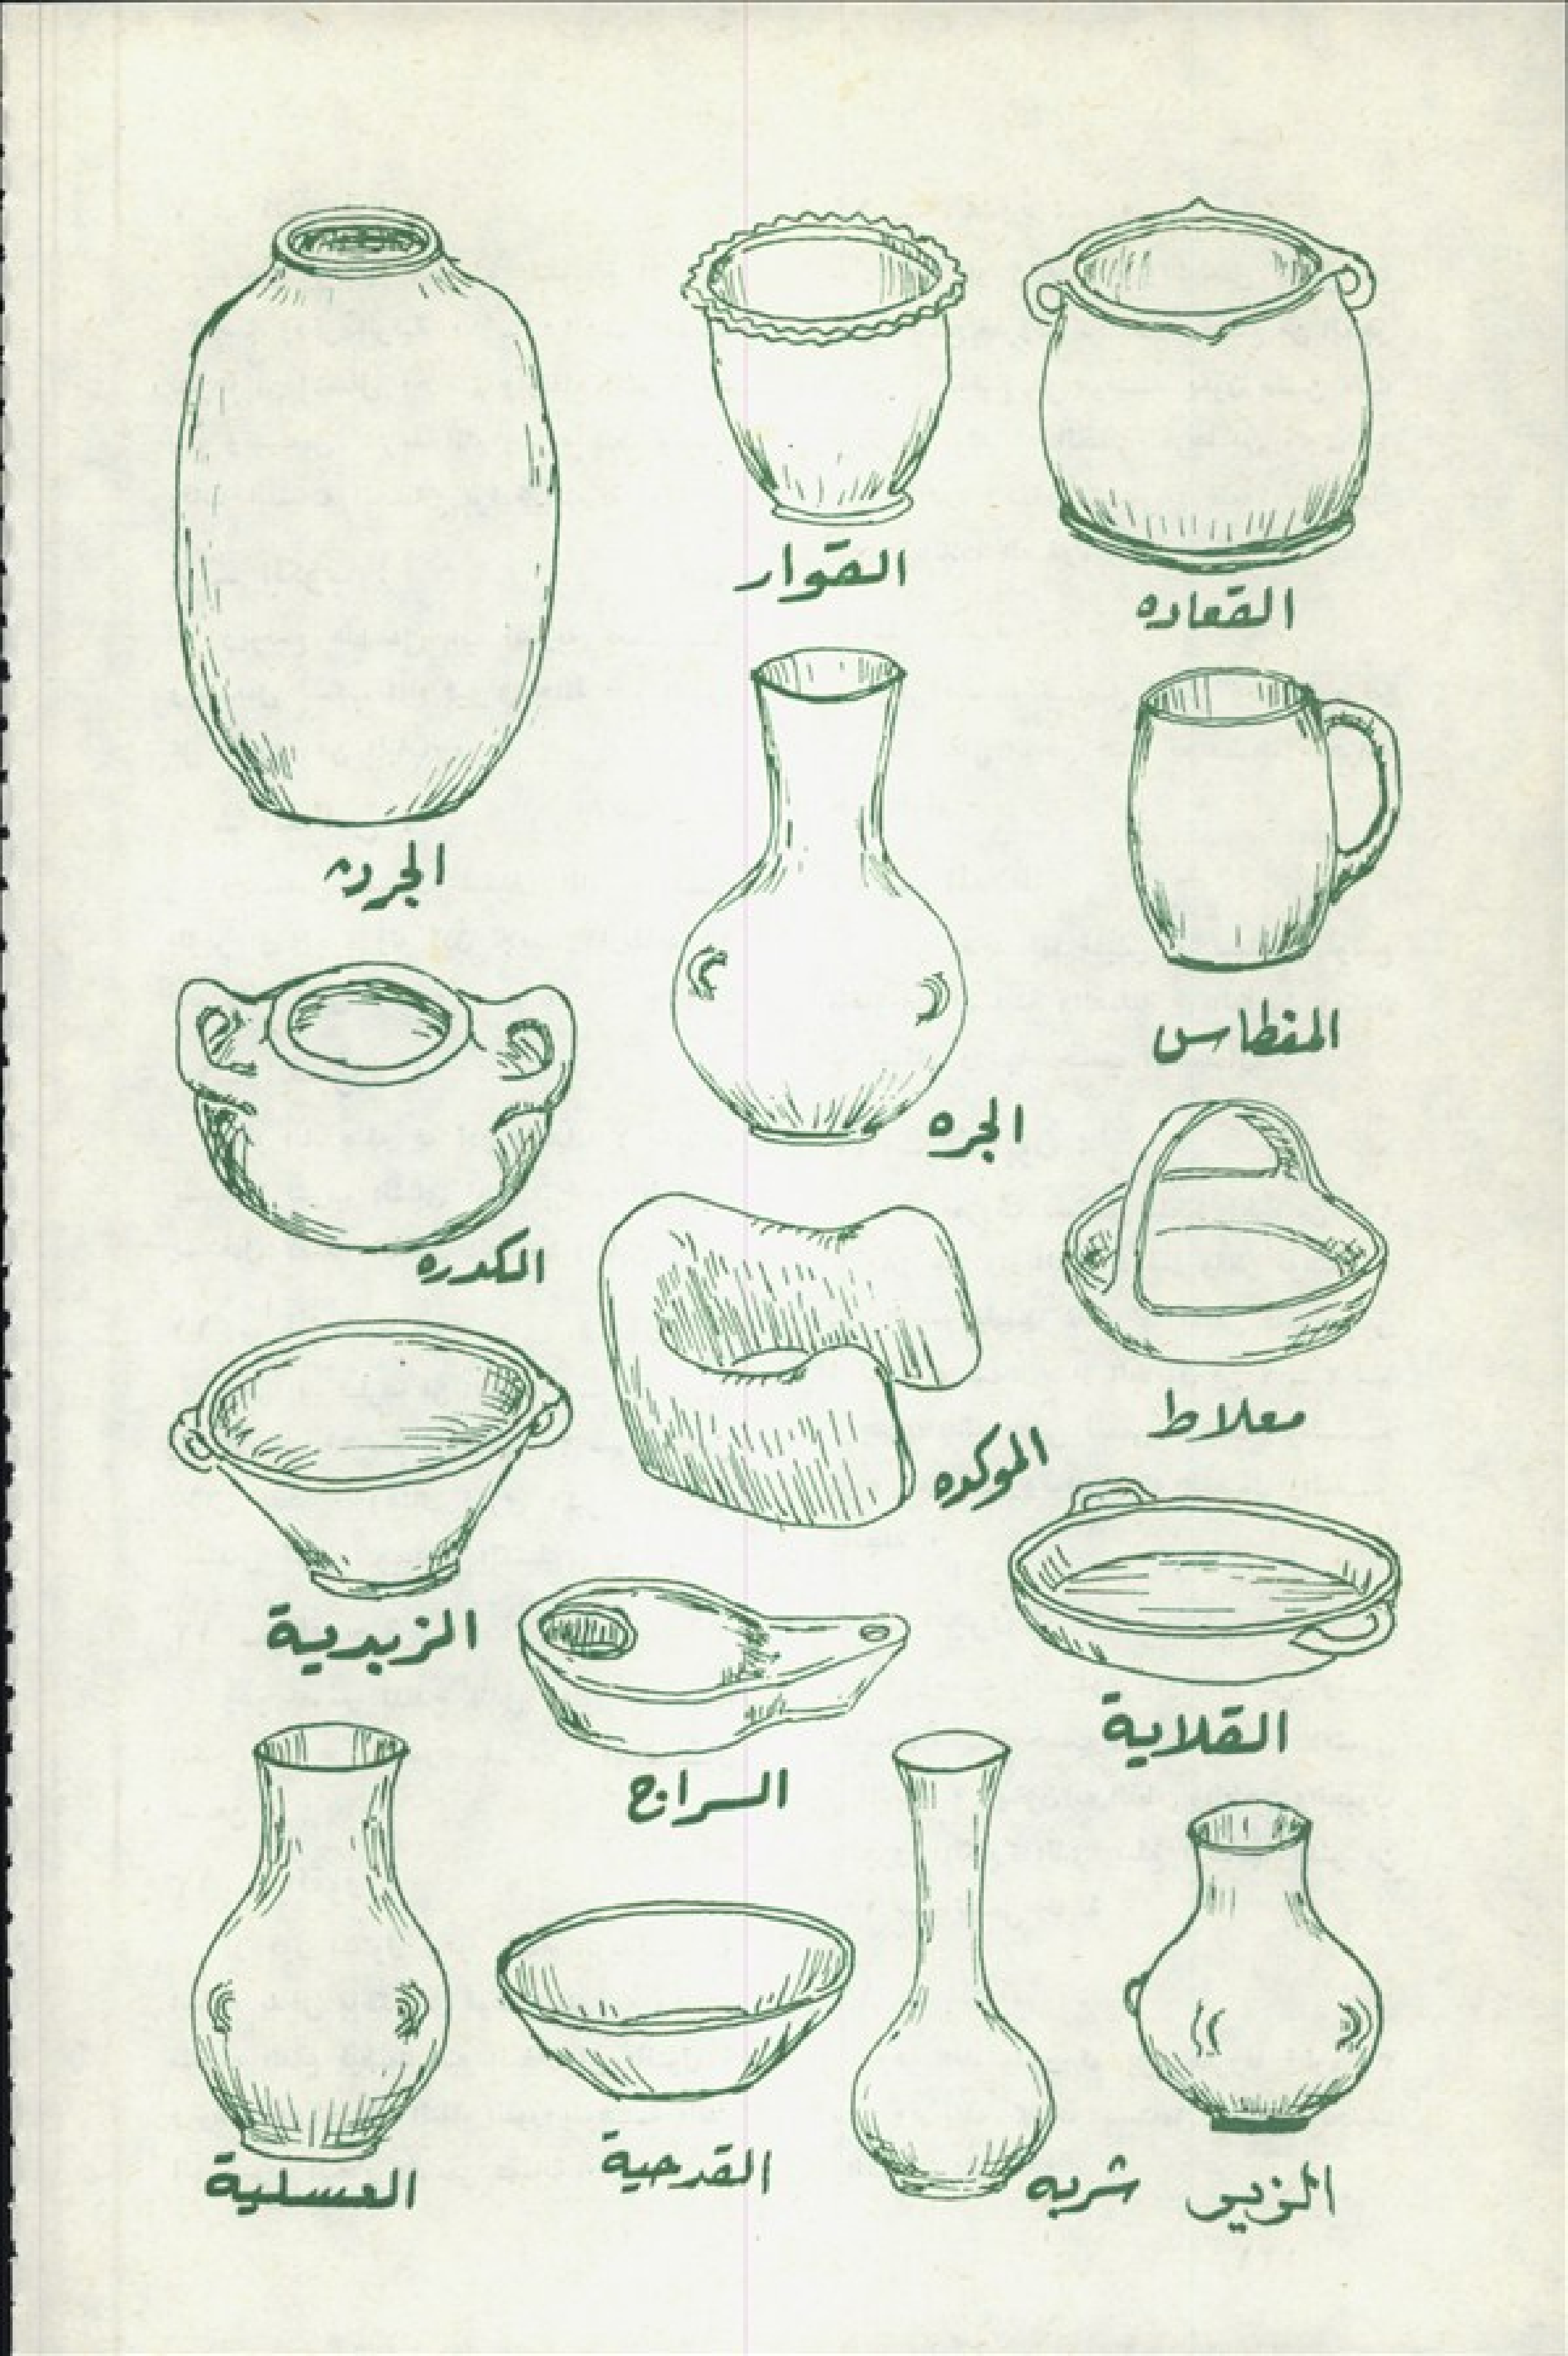 القعاده
القوار
الجرن
المغطاس
الجره
الكدره
معلاط
الموكده
الزبدية
القلاية
السراج
الزير
شربه
القدحية
العسلية